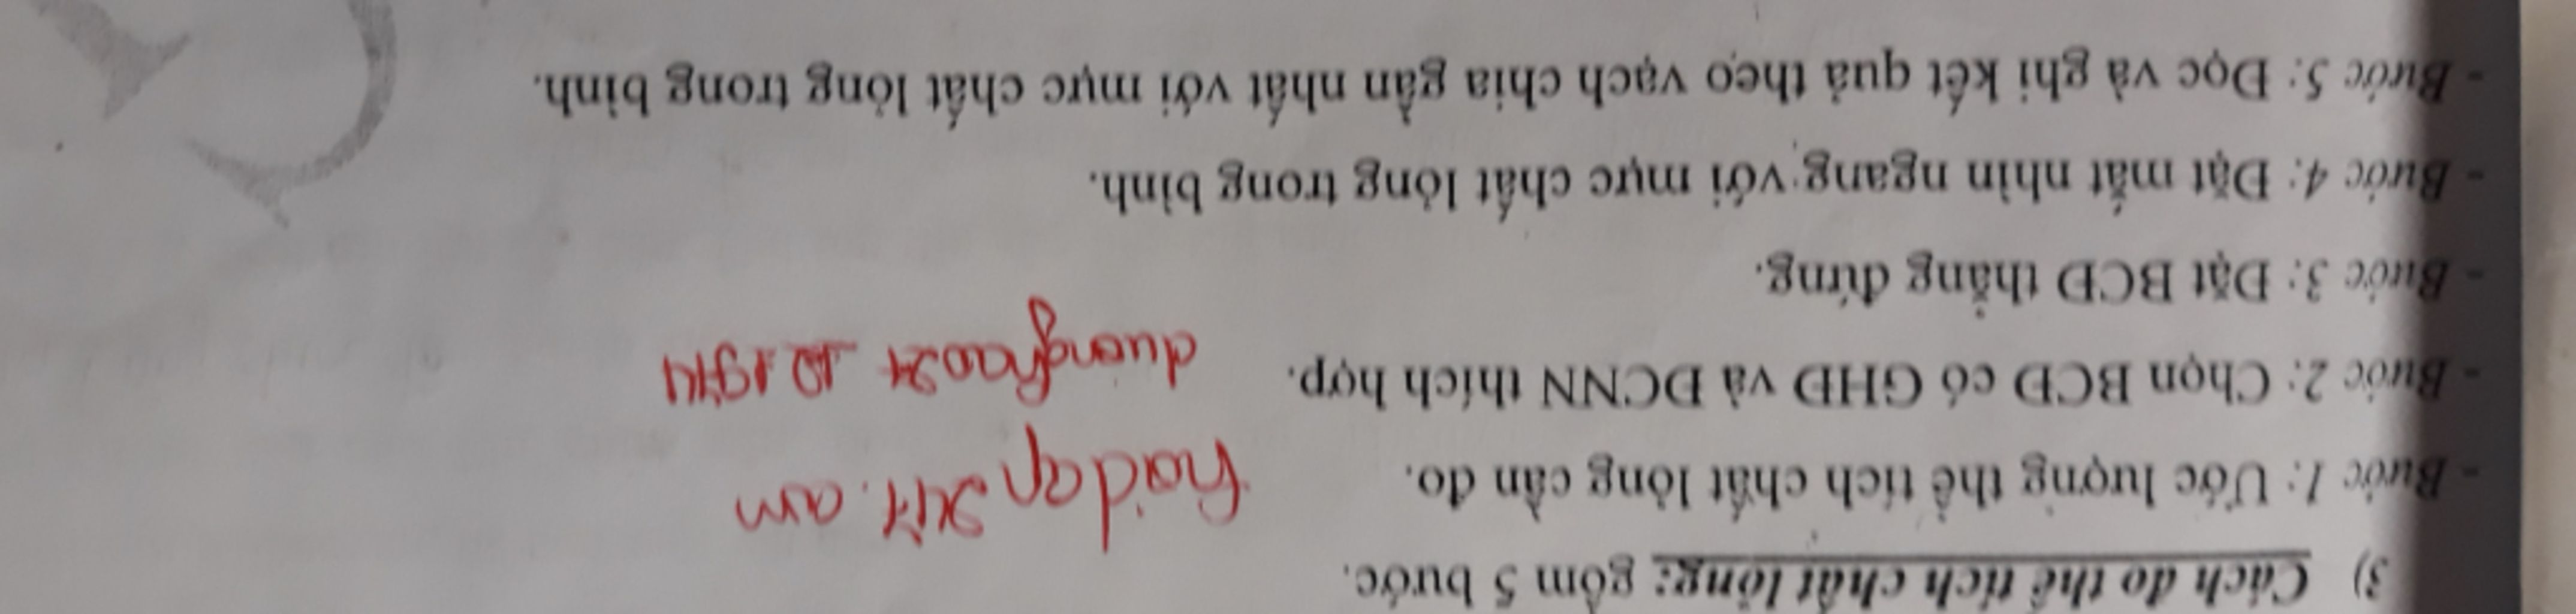 3) Cách đo thể tích chất lỏng: gồm 5 bước.
- Bước 1: Ước lượng thể tích chất lỏng cần đo.
- Bước 2: Chọn BCĐ có GHĐ và ĐCNN thích hợp.
- Bước 3: Đặt BCĐ thẳng đứng.
- Bước 4: Đặt mắt nhìn ngang với mực chất lỏng trong bình.
- Bước 5: Đọc và ghi kết quả theo vạch chia gần nhất với mực chất lỏng trong bình.